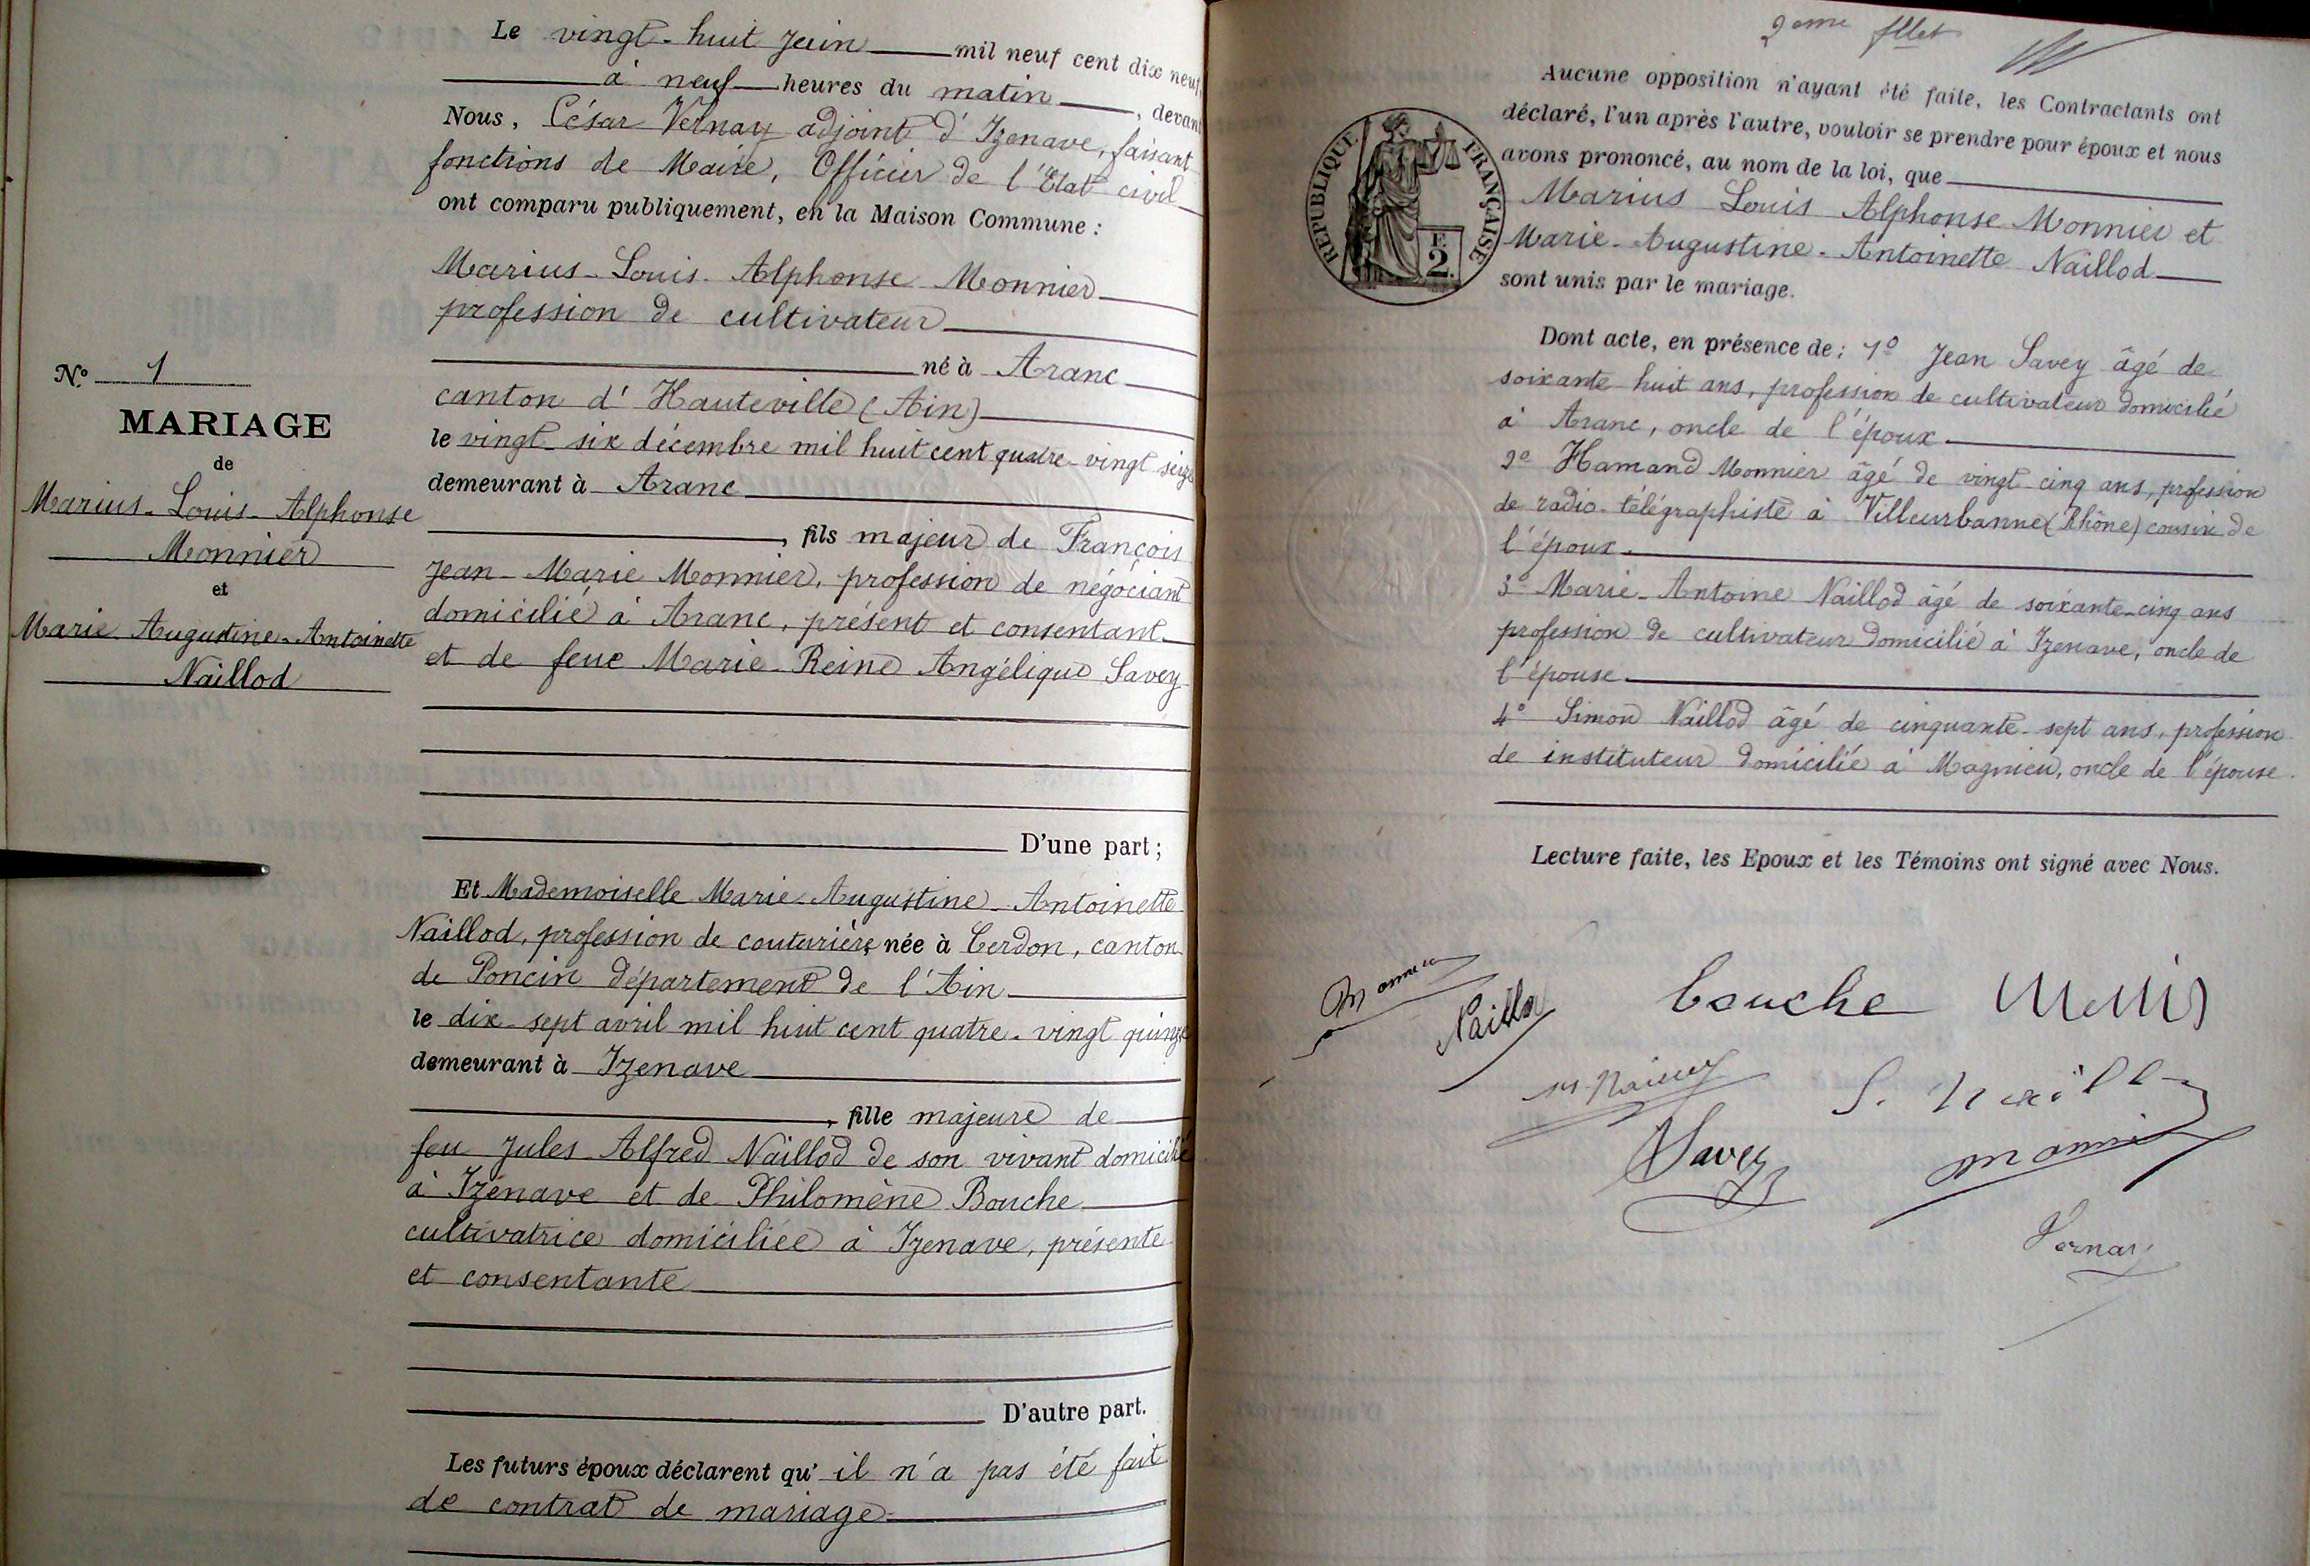 Le vingt-huit Juin mil neuf cent dix neuf,
à neuf heures du matin, devant
Nous, César Vernay adjoint d'Izenave, faisant
fonctions de Maire, Officier de l'État civil
ont comparu publiquement, en la Maison Commune :
Marius-Louis-Alphonse Monnier
profession de cultivateur
né à Aranc
canton d'Hauteville (Ain)
le vingt-six décembre mil huit cent quatre-vingt seize
demeurant à Aranc
, fils majeur de François
Jean-Marie Monnier, profession de négociant
domicilié à Aranc, présent et consentant
et de feue Marie-Reine Angélique Savey
D'une part ;
N° 1
MARIAGE
de
Marius-Louis-Alphonse
Monnier
et
Marie-Augustine-Antoinette
Naillod
Et Mademoiselle Marie-Augustine-Antoinette
Naillod, profession de couturière, née à Cerdon, canton
de Poncin département de l'Ain
le dix-sept avril mil huit cent quatre-vingt quinze
demeurant à Izenave
, fille majeure de
feu Jules Alfred Naillod de son vivant domicilié
à Izenave et de Philomène Bouche
cultivatrice domiciliée à Izenave, présente
et consentante
D'autre part.
Les futurs époux déclarent qu'il n'a pas été fait
de contrat de mariage.
2eme fllet
Aucune opposition n'ayant été faite, les Contractants ont
déclaré, l'un après l'autre, vouloir se prendre pour époux et nous
avons prononcé, au nom de la loi, que
Marius Louis Alphonse Monnier et
Marie-Augustine-Antoinette Naillod
sont unis par le mariage.
RÉPUBLIQUE FRANÇAISE
F.
2.
Dont acte, en présence de : 1° Jean Savey âgé de
soixante huit ans, profession de cultivateur domicilié
à Aranc, oncle de l'époux.
2° Hamand Monnier âgé de vingt-cinq ans, profession
de radio-télégraphiste à Villeurbanne (Rhône) cousin de
l'époux.
3° Marie-Antoine Naillod âgé de soixante-cinq ans
profession de cultivateur domicilié à Izenave, oncle de
l'épouse.
4° Simon Naillod âgé de cinquante-sept ans, profession
de instituteur domicilié à Magnieu, oncle de l'épouse.
Lecture faite, les Epoux et les Témoins ont signé avec Nous.
Monnier
Naillod
bouche
S. Naillod
Savey
Monnier
Vernay